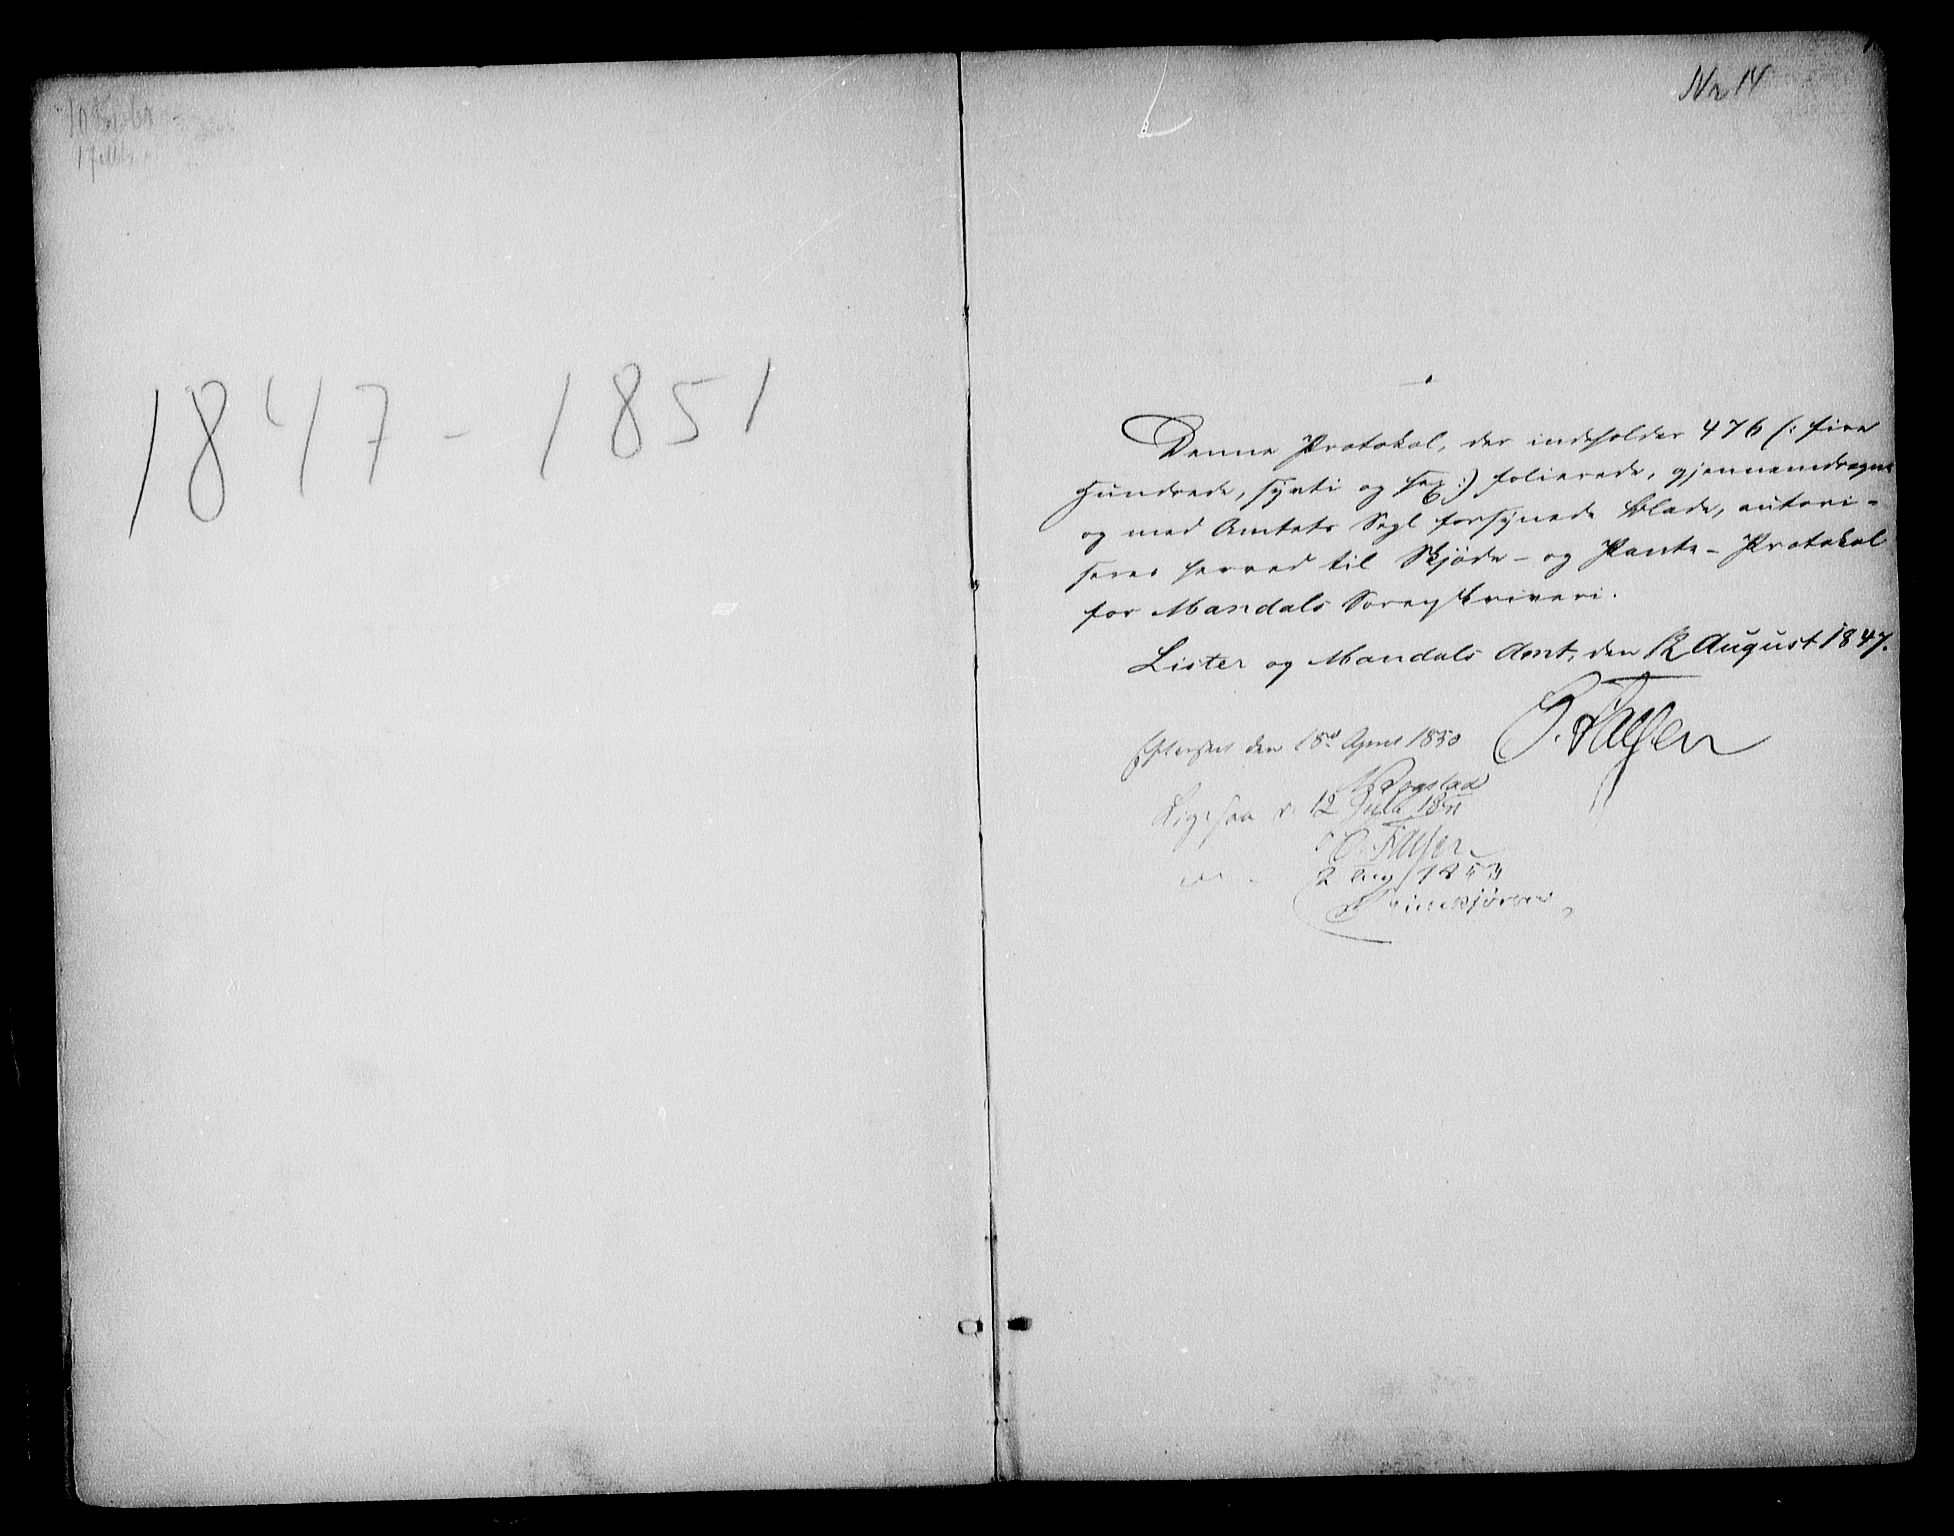 1847 - 1851
Nr 14
Denne Protokol, der indeholder 476 (: fire
hundrede, sytti og sex :) folierede, gjennemdragne
og med Amtets Segl forsynede Blade, autori-
seres herved til Skjøde- og Pante-Protokol
for Mandals Sorenskriveri.
Lister og Mandals Amt, den 12 August 1847.
Efterseet den 18de April 1850
Ligesaa d. 12 Juli 1851
2 Aug 1853